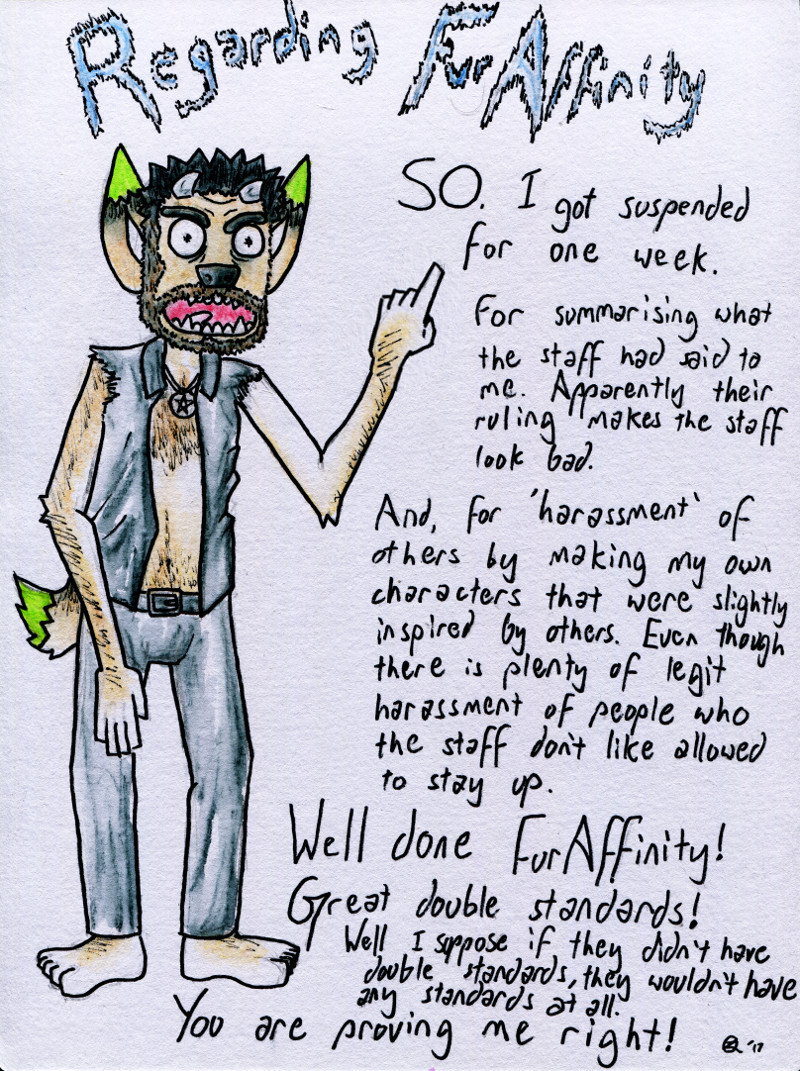 Regarding FurAffinity
SO. I got suspended
for one week.
For summarising what
the staff had said to
me. Apparently their
ruling makes the staff
look bad.
And, for 'harassment' of
others by making my own
characters that were slightly
inspired by others. Even though
there is plenty of legit
harassment of people who
the staff don't like allowed
to stay up.
Well done FurAffinity!
Great double standards!
Well I suppose if they didn't have
double standards, they wouldn't have
any standards at all.
You are proving me right!